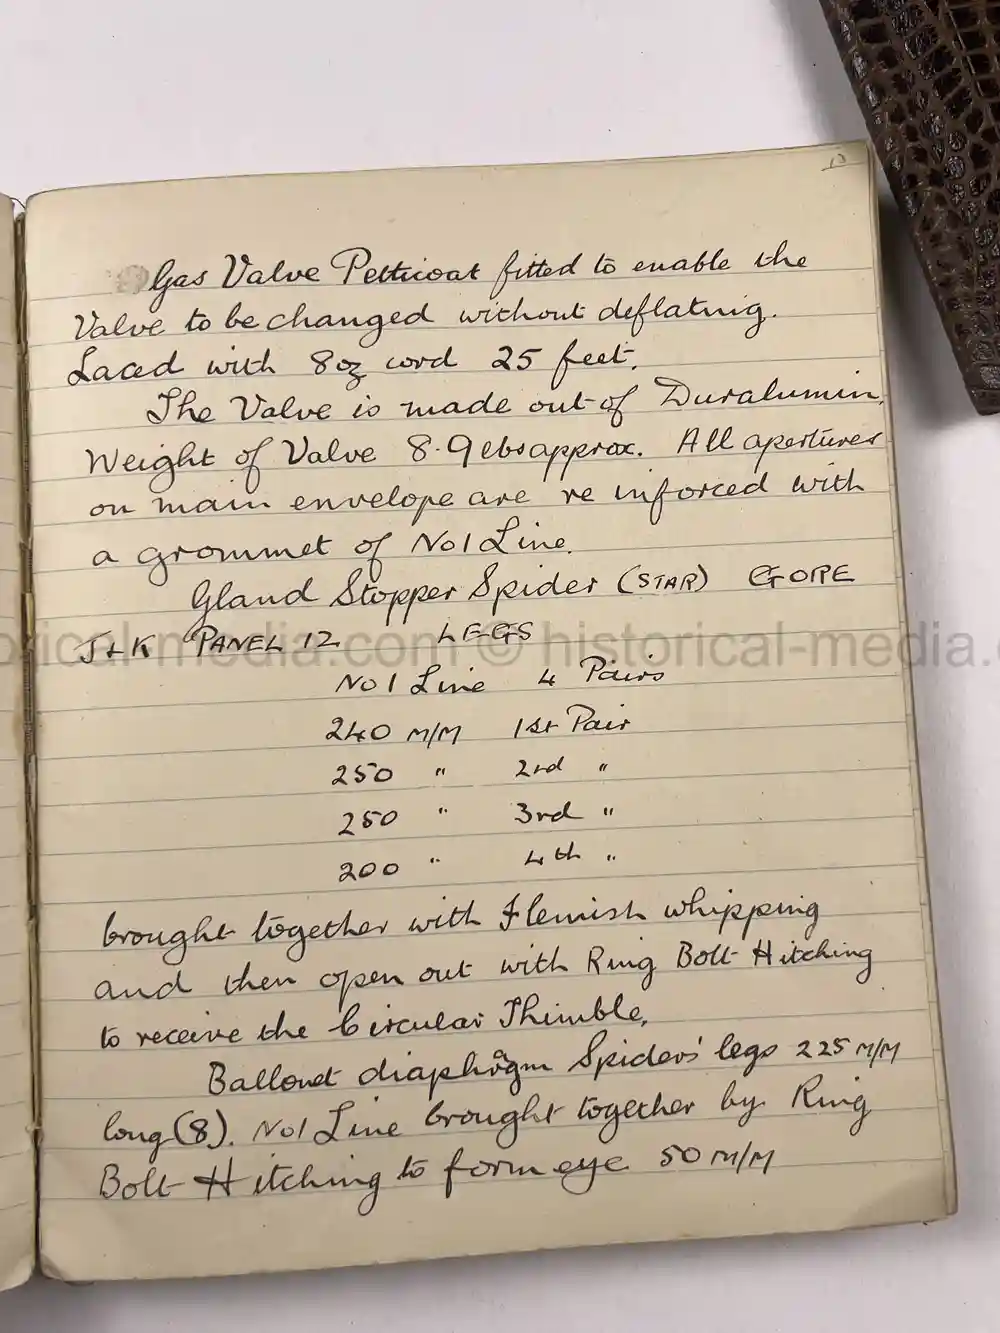 10
Gas Valve Petticoat fitted to enable the
Valve to be changed without deflating.
Laced with 8oz cord 25 feet.
The Valve is made out of Duralumin.
Weight of Valve 8.9 lbs approx. All apertures
on main envelope are re inforced with
a grommet of No 1 Line.
Gland Stopper Spider (STAR) GORE
J & K PANEL 12 LEGS
historical-media.com © historical-media.
No 1 Line 4 Pairs
240 M/M 1st Pair
250 " 2nd "
250 " 3rd "
200 " 4th "
brought together with Flemish whipping
and then open out with Ring Bolt Hitching
to receive the Circular Thimble.
Ballonet diaphragm Spiders' legs 225 M/M
long (8). No 1 Line brought together by Ring
Bolt Hitching to form eye 50 M/M